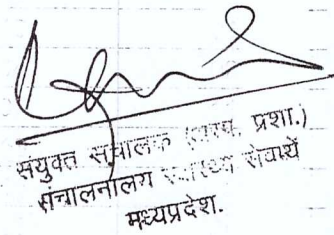 संयुक्त संचालक (स्वास्थ्य. प्रशा.)
संचालनालय स्वास्थ्य सेवायें
मध्यप्रदेश.